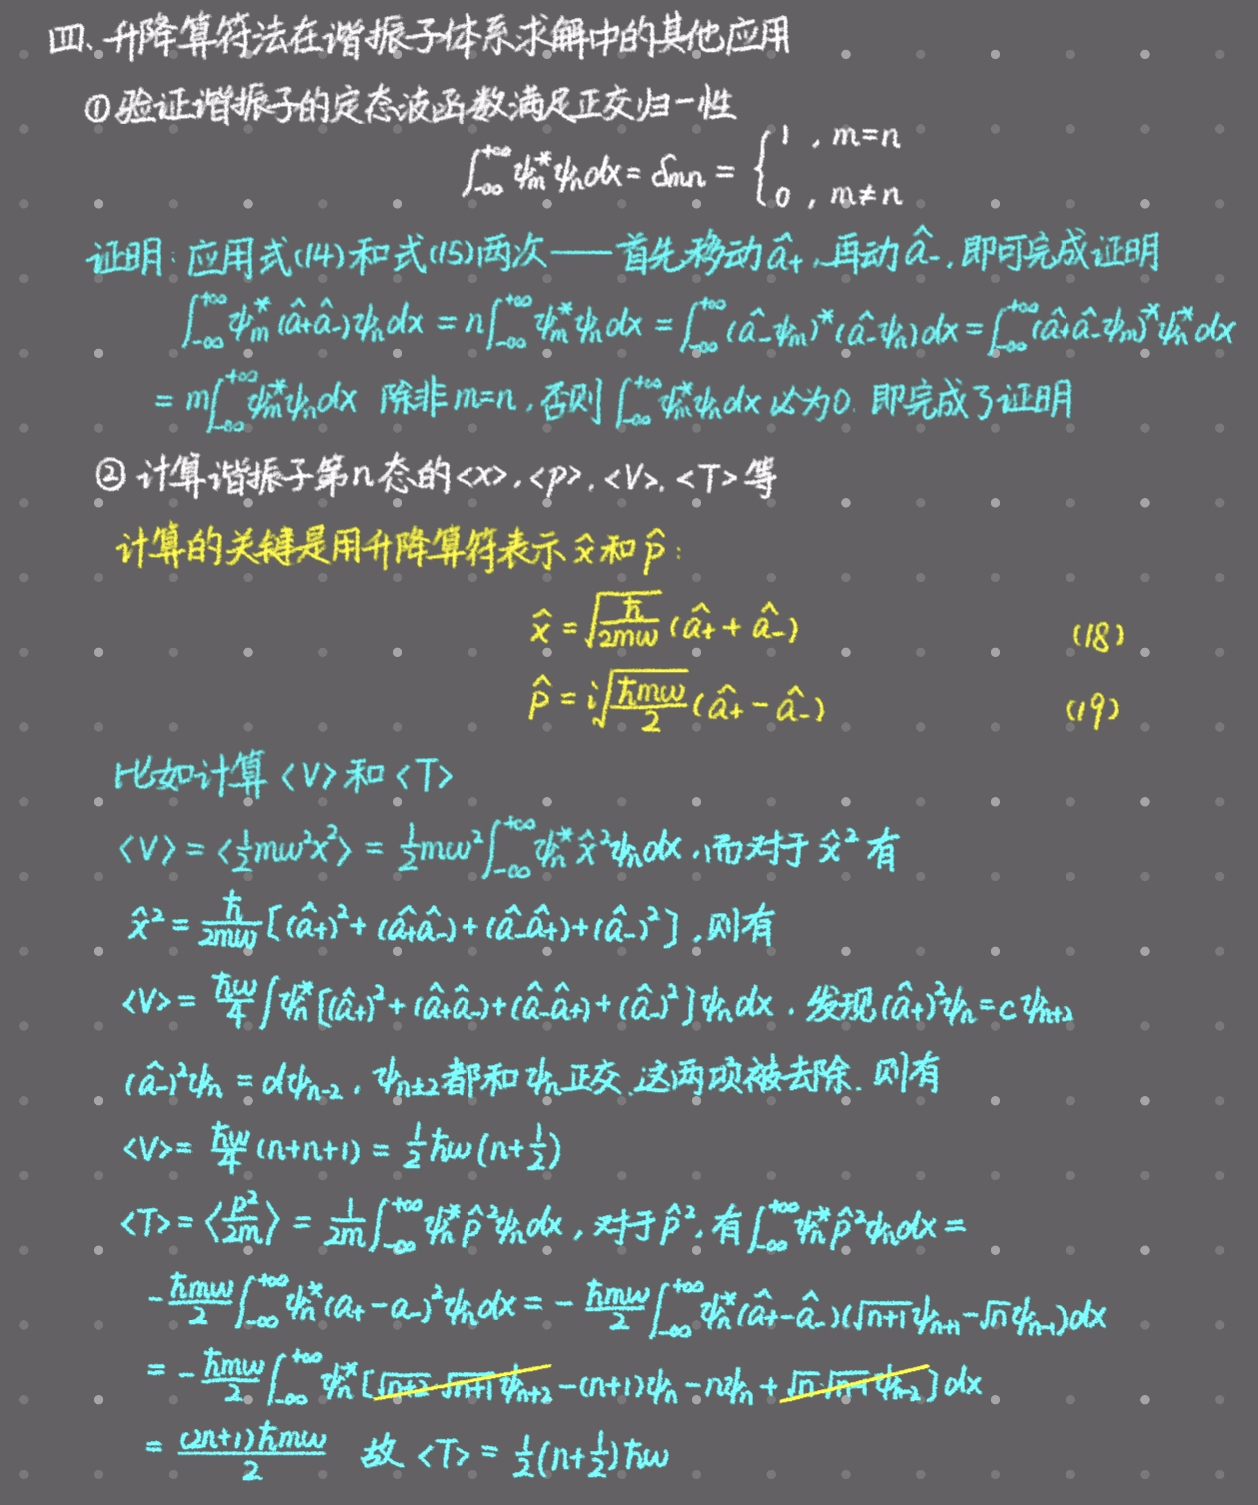 四、升降算符法在谐振子体系求解中的其他应用
①验证谐振子的定态波函数满足正交归一性
∫_{-∞}^{+∞} ψ_m^* ψ_n dx = δ_{mn} = { 1 , m=n
0 , m≠n
证明:应用式(14)和式(15)两次——首先移动 â₊,再动 â₋,即可完成证明
∫_{-∞}^{+∞} ψ_m^* (â₊â₋)ψ_n dx = n∫_{-∞}^{+∞} ψ_m^* ψ_n dx = ∫_{-∞}^{+∞} (â₋ψ_m)^* (â₋ψ_n) dx = ∫_{-∞}^{+∞} (â₊â₋ψ_m)^* ψ_n^* dx
= m∫_{-∞}^{+∞} ψ_m^* ψ_n dx 除非 m=n,否则 ∫_{-∞}^{+∞} ψ_m^* ψ_n dx 必为0. 即完成了证明
② 计算谐振子第n态的<x>,<p>,<V>,<T>等
计算的关键是用升降算符表示 x̂ 和 p̂:
x̂ = √(ħ/2mω) (â₊ + â₋) (18)
p̂ = i√(ħmω/2) (â₊ - â₋) (19)
比如计算<V>和<T>
<V> = <½mω²x²> = ½mω²∫_{-∞}^{+∞} ψ_n^* x̂²ψ_n dx,而对于 x̂² 有
x̂² = ħ/2mω [(â₊)² + (â₊â₋) + (â₋â₊) + (â₋)²],则有
<V> = ħω/4 ∫ψ_n^* [(â₊)² + (â₊â₋) + (â₋â₊) + (â₋)²]ψ_n dx,发现(â₊)²ψ_n = cψ_{n+2}
(â₋)²ψ_n = dψ_{n-2},ψ_{n±2}都和ψ_n正交,这两项被去除. 则有
<V> = ħω/4 (n+n+1) = ½ħω(n+½)
<T> = <p²/2m> = 1/2m ∫_{-∞}^{+∞} ψ_n^* p̂²ψ_n dx,对于p̂²,有∫_{-∞}^{+∞} ψ_n^* p̂²ψ_n dx =
-ħmω/2 ∫_{-∞}^{+∞} ψ_n^* (a₊ - a₋)²ψ_n dx = -ħmω/2 ∫_{-∞}^{+∞} ψ_n^* (â₊ - â₋)(√(n+1) ψ_{n+1} - √n ψ_{n-1}) dx
= -ħmω/2 ∫_{-∞}^{+∞} ψ_n^* [√(n+2) √(n+1) ψ_{n+2} - (n+1)ψ_n - nψ_n + √n √(n-1) ψ_{n-2}] dx
= (2n+1)ħmω/2 故 <T> = ½(n+½)ħω